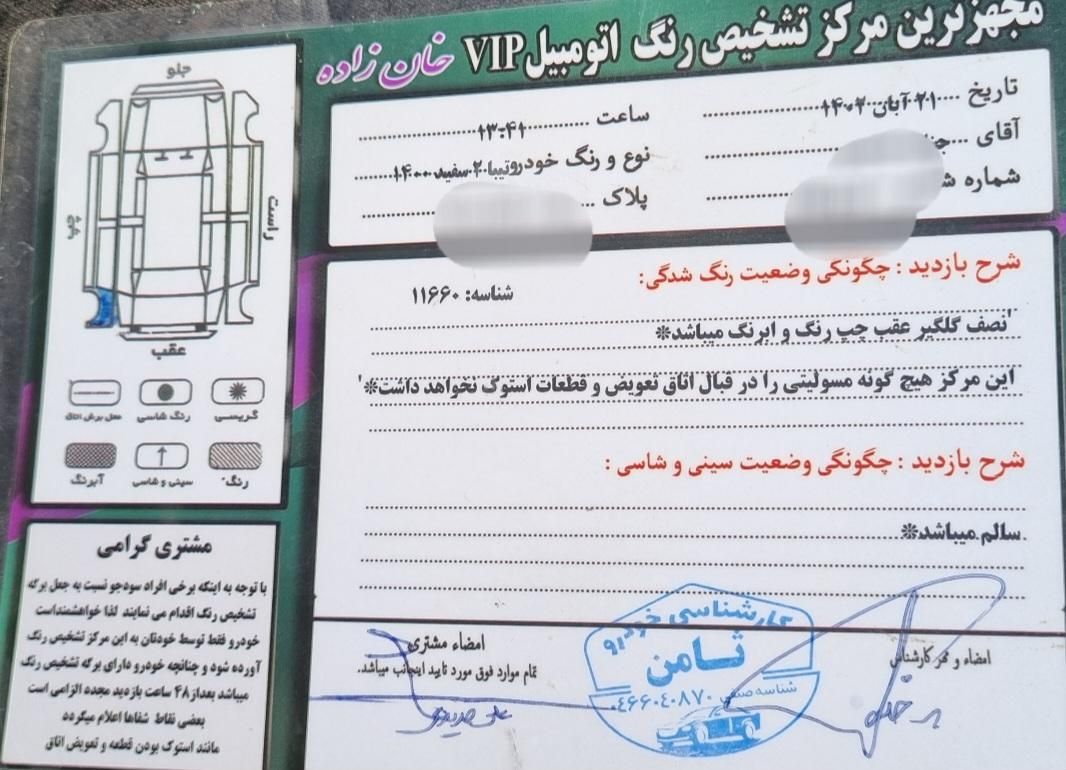 مجهزترین مرکز تشخیص رنگ اتومبیل VIP خان زاده
تاریخ ۲۱ آبان ۱۴۰۲
ساعت ۱۳:۴۱
آقای
نوع و رنگ خودرو تیبا ۲ سفید ۱۴۰۰
شماره
پلاک
شرح بازدید : چگونگی وضعیت رنگ شدگی:
شناسه: ۱۱۶۶۰
'نصف گلگیر عقب چپ رنگ و ابرنگ میباشد*
این مرکز هیچ گونه مسولیتی را در قبال اتاق تعویض و قطعات استوک نخواهد داشت*'
شرح بازدید : چگونگی وضعیت سینی و شاسی :
سالم میباشد*
امضاء و مهر کارشناس
امضاء مشتری
تمام موارد فوق مورد تایید اینجانب میباشد.
کارشناسی خودرو
ثامن
شناسه صنفی ۰۴۶۶۰۴۰۸۷۰
جلو
چپ
راست
عقب
گریسی
رنگ شاسی
محل برش اتاق
رنگ
سینی و شاسی
آبرنگ
مشتری گرامی
با توجه به اینکه برخی افراد سودجو نسبت به جعل برگه
تشخیص رنگ اقدام می نمایند لذا خواهشمنداست
خودرو فقط توسط خودتان به این مرکز تشخیص رنگ
آورده شود و چنانچه خودرو دارای برگه تشخیص رنگ
میباشد بعداز ۴۸ ساعت بازدید مجدد الزامی است
بعضی نقاط شفاها اعلام میگردد
مانند استوک بودن قطعه و تعویض اتاق